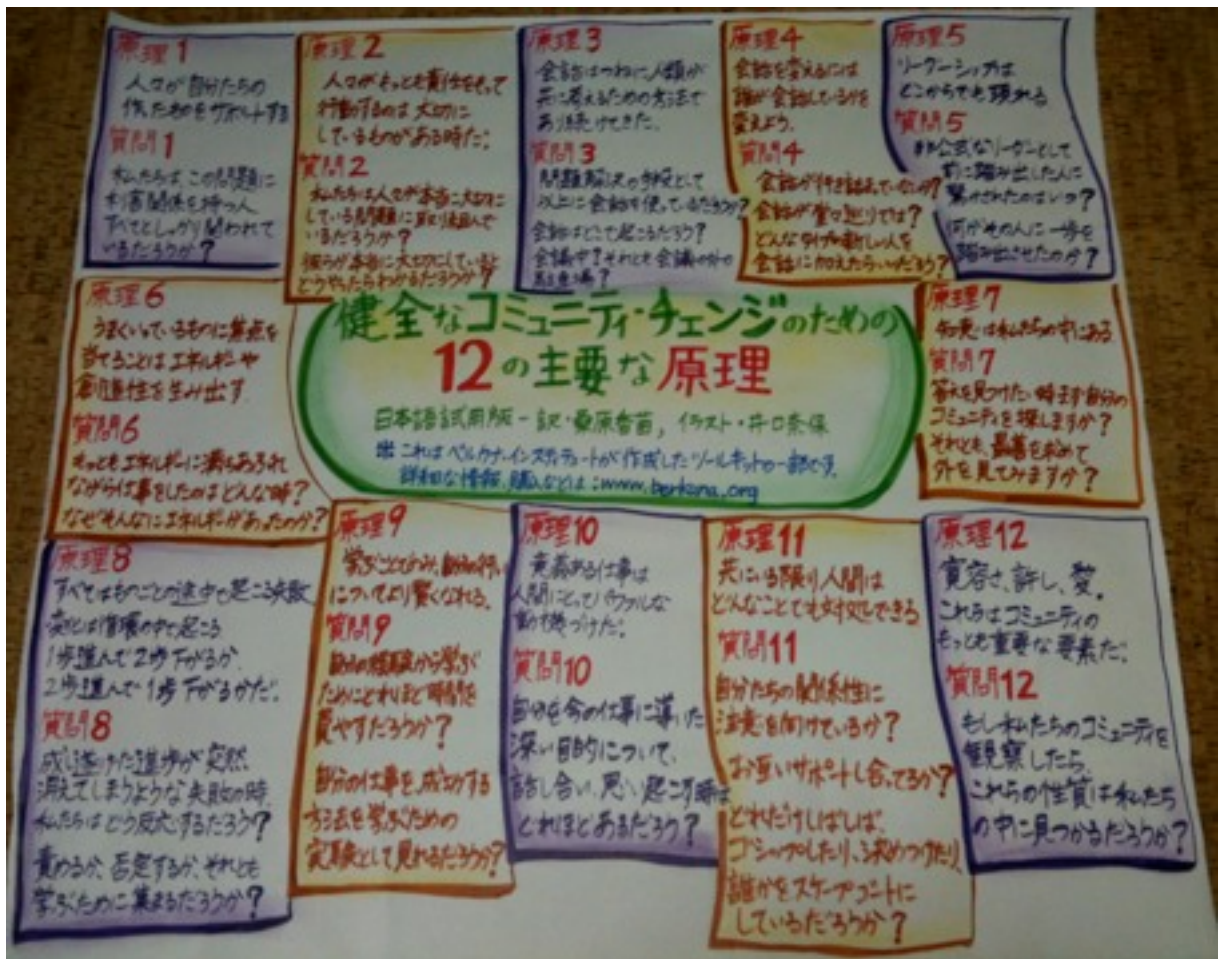 原理1
人々が自分たちの
作ったものをサポートする
質問1
私たちは、この問題に
利害関係を持つ人
すべてとしっかり関われて
いるだろうか?
原理2
人々がもっとも責任をもって
行動するのは大切に
しているものがある時だ。
質問2
私たちは人々が本当に大切に
している問題に取り組んで
いるだろうか?
彼らが本当に大切にしていると
どうやったらわかるだろうか?
原理3
会話はつねに人類が
共に考えるための方法で
あり続けてきた。
質問3
問題解決の手段として
以上に会話を使っているだろうか?
会話はどこで起こるだろう?
会議中?それとも会議の外の
原理4
会話を変えるには
誰が会話しているかを
変えよう。
質問4
会話が行き詰まっていないか?
会話が堂々巡りでは?
どんなタイプの新しい人を
会話に加えたらいいだろう?
原理5
リーダーシップは
どこからでも現れる
質問5
非公式なリーダーとして
前に踏み出した人に
驚かされたのはいつ?
何がその人に一歩を
踏み出させたのか?
原理6
うまくいっているものに焦点を
当てることはエネルギーや
創造性を生み出す
質問6
もっともエネルギーに満ちあふれ
ながら仕事をしたのはどんな時?
なぜそんなにエネルギーがあったのか?
健全なコミュニティ・チェンジのための
12の主要な原理
日本語試用版-訳・桑原香苗, イラスト・井口奈保
※これはベルカナ・インスティテュートが作成したツールキットの一部です。
詳細な情報、購入などは:www.berkana.org
原理7
知恵は私たちの中にある
質問7
答えを見つけたい時まず自分の
コミュニティを探しますか?
それとも、最善を求めて
外を見てみますか?
原理8
すべてはものごとの途中で起こる失敗
変化は循環の中で起こる
1歩進んで2歩下がるか、
2歩進んで1歩下がるかだ。
質問8
成し遂げた進歩が突然
消えてしまうような失敗の時、
私たちはどう反応するだろう?
責めるか、否定するか、それとも
学ぶために集まるだろうか?
原理9
学ぶことでのみ、自分の行い
についてより賢くなれる。
質問9
自分の経験から学ぶ
ためにどれほど時間を
費やすだろうか?
自分の仕事を、成功する
方法を学ぶための
実験として見れるだろうか?
原理10
意義ある仕事は
人間にとってパワフルな
動機づけだ。
質問10
自分を今の仕事に導いた
深い目的について、
話し合い、思い起こす時は
どれほどあるだろう?
原理11
共にいる限り人間は
どんなことでも対処できる
質問11
自分たちの関係性に
注意を向けているか?
お互いサポートし合ってるか?
どれだけしばしば、
ゴシップしたり、決めつけたり、
誰かをスケープゴートに
しているだろうか?
原理12
寛容さ、許し、愛。
これらはコミュニティの
もっとも重要な要素だ。
質問12
もし私たちのコミュニティを
観察したら、
これらの性質は私たち
の中に見つかるだろうか?